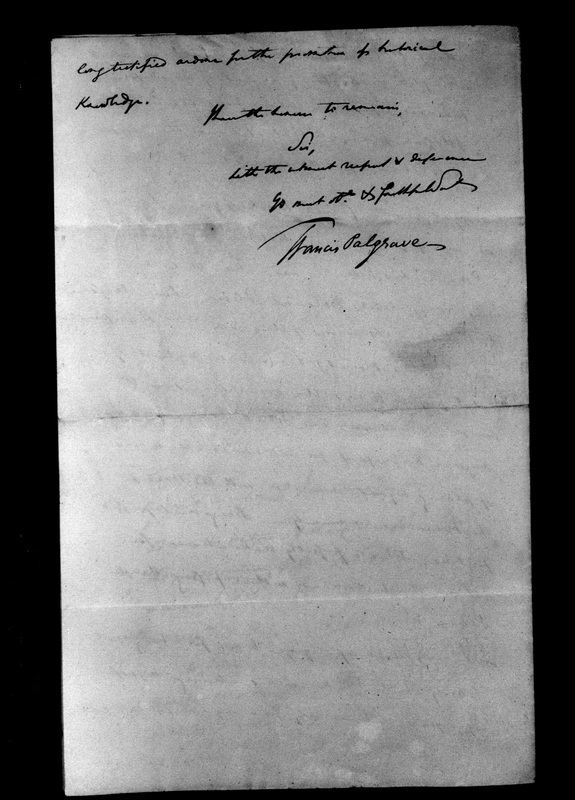 long testified ardour for the promotion of historical
Knowledge.
I have the honour to remain,
Sir,
With the utmost respect & deference
Yr most obt. & faithful
Francis Palgrave